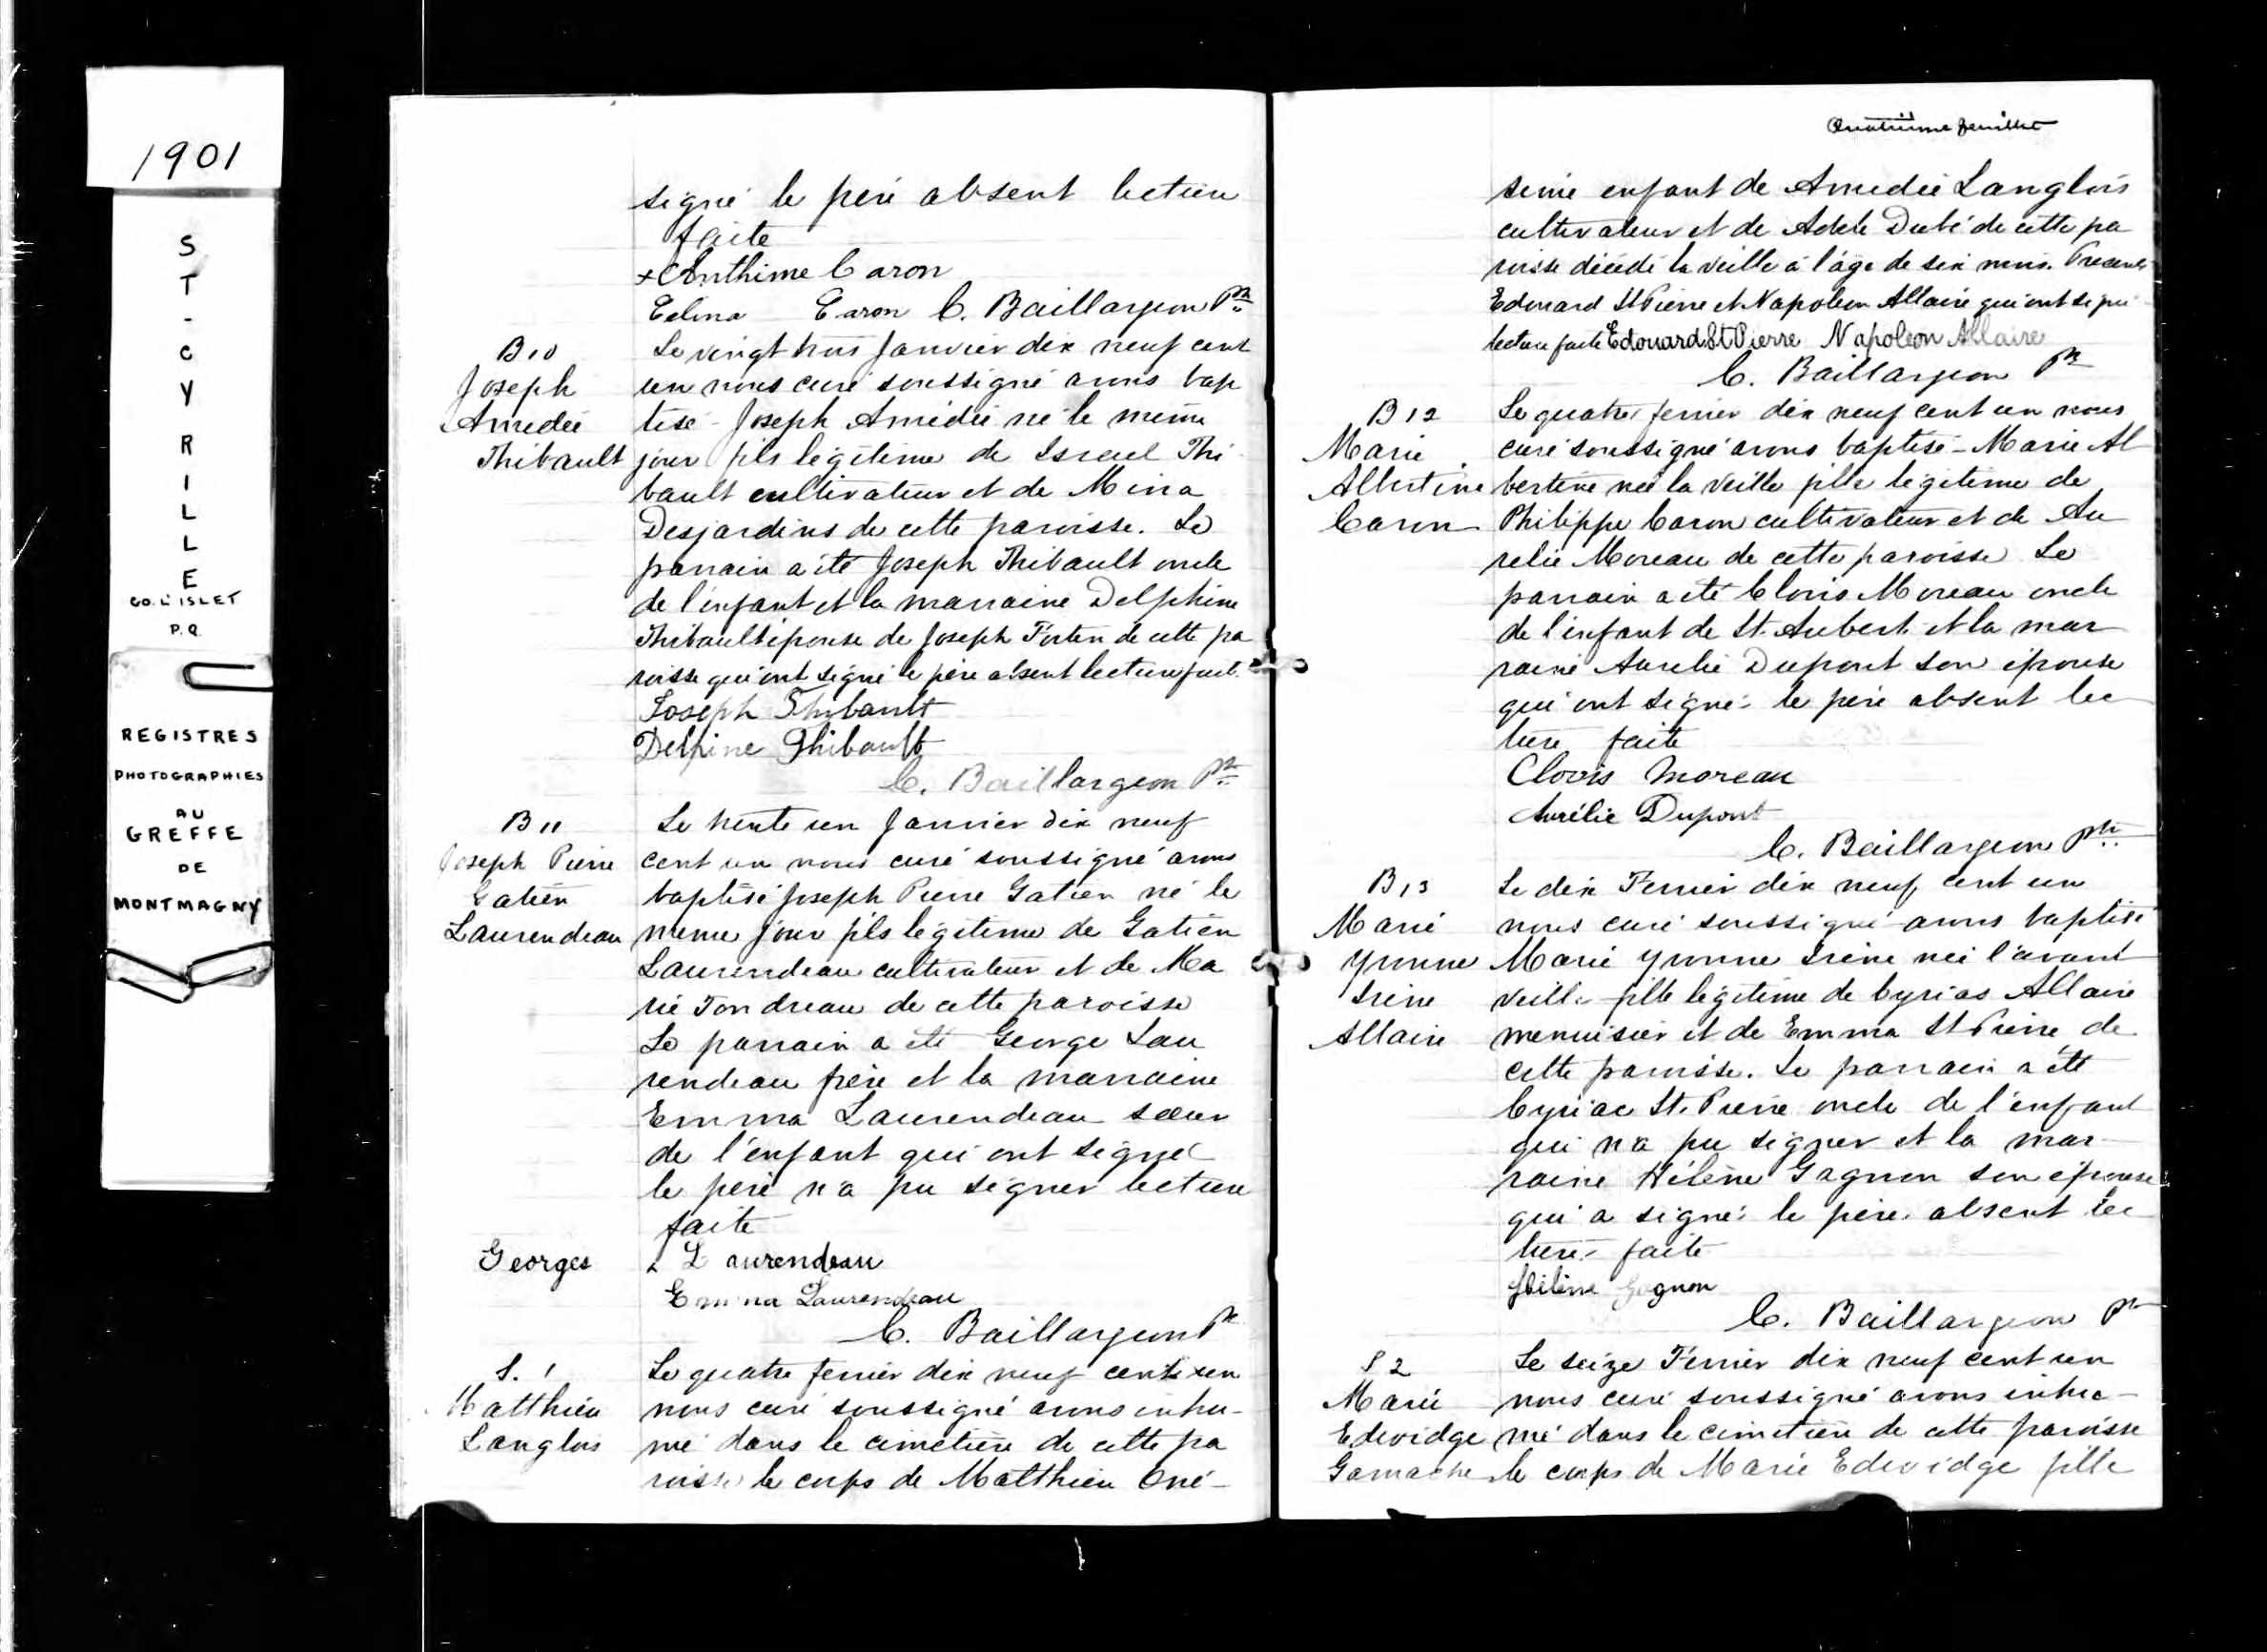 1901
ST-CYRILLE
CO. L'ISLET
P.Q.
REGISTRES
PHOTOGRAPHIES
AU
GREFFE
DE
MONTMAGNY
signé le père absent lecture
faite
+ Anthime Caron
Caron C. Baillargeon Ptre
B10
Joseph
Amedée
Thibault
Le vingt trois Janvier dix neuf cent
un nous curé soussigné avons bap
tisé - Joseph Amédée né le même
jour fils légitime de Israel Thi
bault cultivateur et de Mina
Desjardins de cette paroisse. Le
parrain a été Joseph Thibault oncle
de l'enfant et la marraine Delphine
Thibault épouse de Joseph Fortin de cette pa
roisse qui ont signé le père absent lecture faite.
Joseph Thibault
Delphine Thibault
C. Baillargeon Ptre
B11
Joseph Pierre
Gatien
Laurendeau
Le trente un Janvier dix neuf
cent un nous curé soussigné avons
baptisé Joseph Pierre Gatien né le
meme jour fils légitime de Gatien
Laurendeau cultivateur et de Ma
rie Tondreau de cette paroisse
Le parrain a été George Lau
rendeau frère et la marraine
Emma Laurendeau soeur
de l'enfant qui ont signé
le père n'a pu signer lecture
faite
Georges Laurendeau
Emma Laurendeau
C. Baillargeon Ptr
S. 1
Matthieu
Langlois
Le quatre fevrier dix neuf cent un
nous curé soussigné avons inhu-
mé dans le cimetière de cette pa
roisse le corps de Matthieu Oné-
Quatrième feuillet
sime enfant de Amedée Langlois
cultivateur et de Adele Dubé de cette pa
roisse décédé la veille à l'âge de six mois. Presents
Edouard St Pierre et Napoleon Allaire qui ont signé
lecture faite Edouard St Pierre Napoleon Allaire
C. Baillargeon Ptr
B12
Marie
Albertine
Caron
Le quatre fevrier dix neuf cent un nous
curé soussigné avons baptisé - Marie Al
bertine née la veille fille légitime de
Philippe Caron cultivateur et de Au
relie Moreau de cette paroisse Le
parrain a été Clovis Moreau oncle
de l'enfant de St. Aubert et la mar
raine Aurelie Dupont son épouse
qui ont signé le père absent lec
ture faite
Clovis Moreau
Aurélie Dupont
C. Baillargeon Ptr
B13
Marie
Yvonne
Irène
Allaire
Le dix Fevrier dix neuf cent un
nous curé soussigné avons baptisé
Marie Yvonne Irène née l'avant
veille fille légitime de Cyrias Allaire
menuisier et de Emma St Pierre de
cette paroisse. Le parrain a été
Cyriac St. Pierre oncle de l'enfant
qui n'a pu signer et la mar-
raine Hélène Gagnon son épouse
qui a signé le père absent lec
ture faite
Hélène Gagnon
C. Baillargeon Ptr
S 2
Marie
Edevidge
Gamache
Le seize Fevrier dix neuf cent un
nous curé soussigné avons inhu-
mé dans le cimetière de cette paroisse
le corps de Marie Edevidge fille